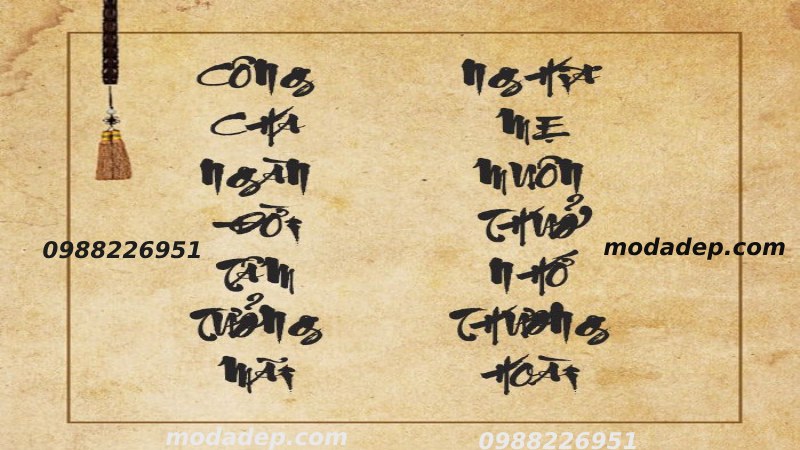 Công
Cha
Ngàn
Đời
Tâm
Tưởng
Mãi
Nghĩa
Mẹ
Muôn
Thuở
Nhớ
Thương
Hoài
0988226951
modadep.com
modadep.com
0988226951